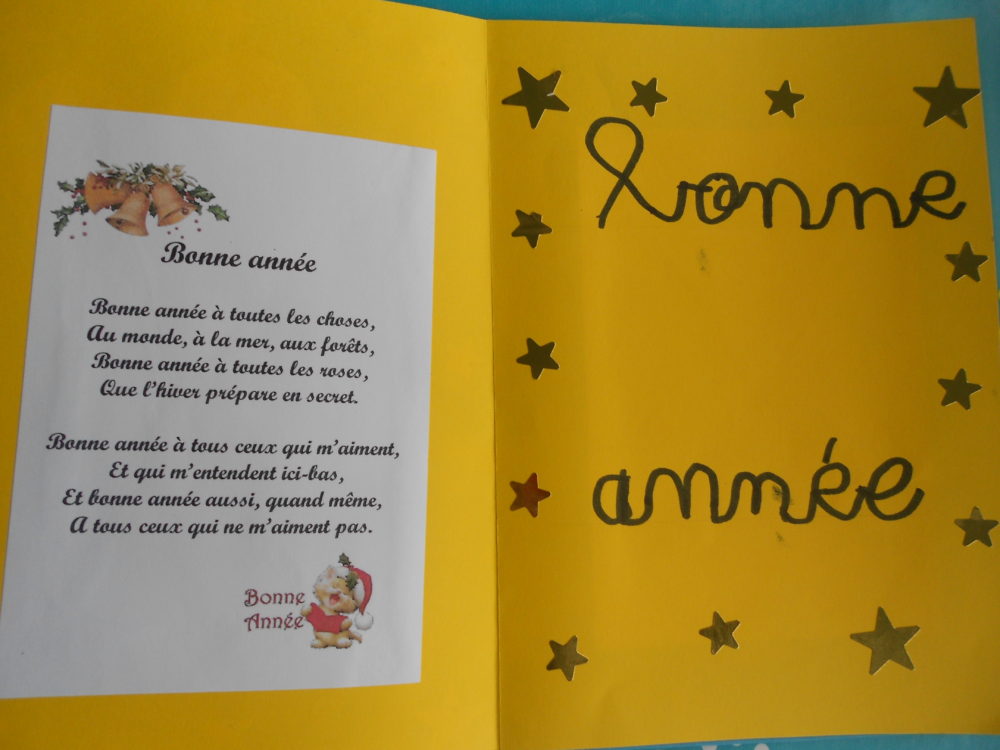 Bonne année
Bonne année à toutes les choses,
Au monde, à la mer, aux forêts,
Bonne année à toutes les roses,
Que l'hiver prépare en secret.
Bonne année à tous ceux qui m'aiment,
Et qui m'entendent ici-bas,
Et bonne année aussi, quand même,
A tous ceux qui ne m'aiment pas.
Bonne
Année
bonne
année